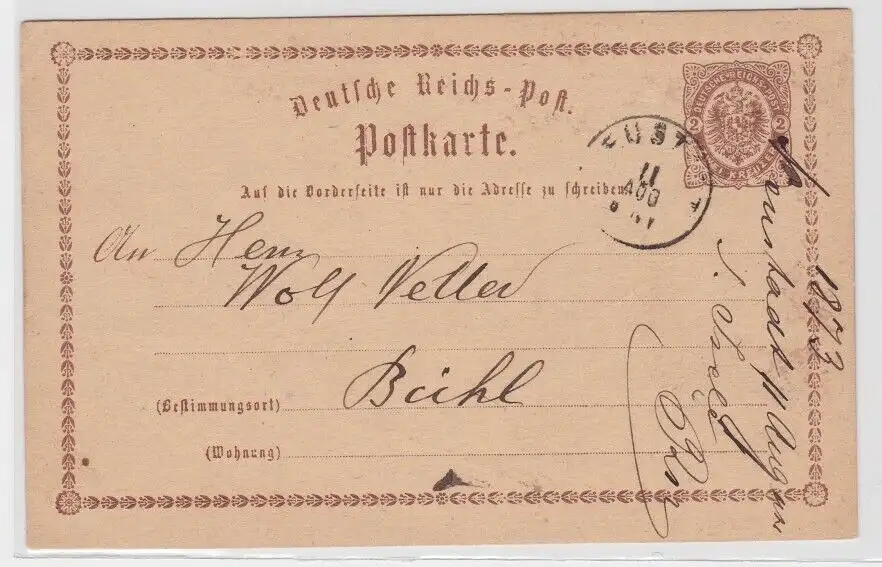 Deutsche Reichs-Post.
Postkarte.
DEUTSCHE REICHS-POST
2 2
KREUZER
11
AUG
Auf die Vorderseite ist nur die Adresse zu schreiben.
An Herrn
Wolf Netter
Bühl
(Bestimmungsort)
(Wohnung)
11 August
1873